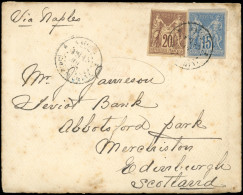 Via Naples
20
15
Mr. Jamieson
Teviot Bank
Abbotsford Park
Merchiston
Edinburgh
Scotland